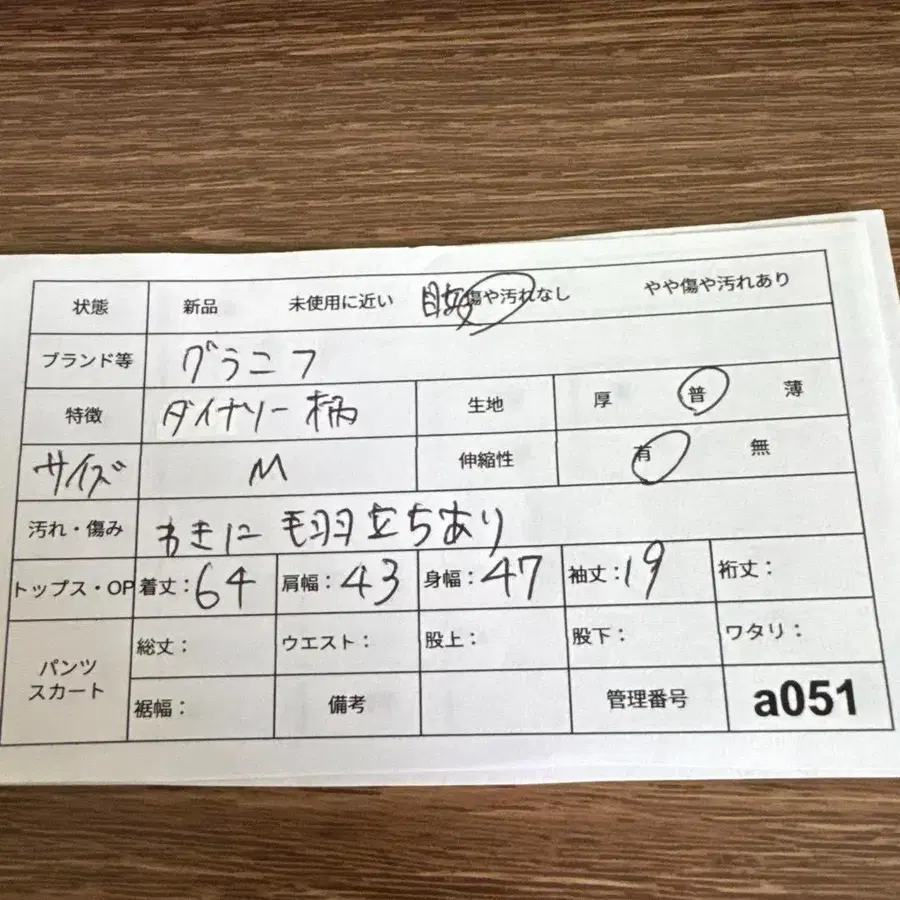 状態 新品 未使用に近い 目立傷や汚れなし やや傷や汚れあり
ブランド等 グラニフ
特徴 ダイナソー柄 生地 厚 普 薄
サイズ M 伸縮性 有 無
汚れ・傷み わきに毛羽立ちあり
トップス・OP 着丈:64 肩幅:43 身幅:47 袖丈:19 裄丈:
パンツ スカート 総丈: ウエスト: 股上: 股下: ワタリ:
裾幅: 備考 管理番号 a051